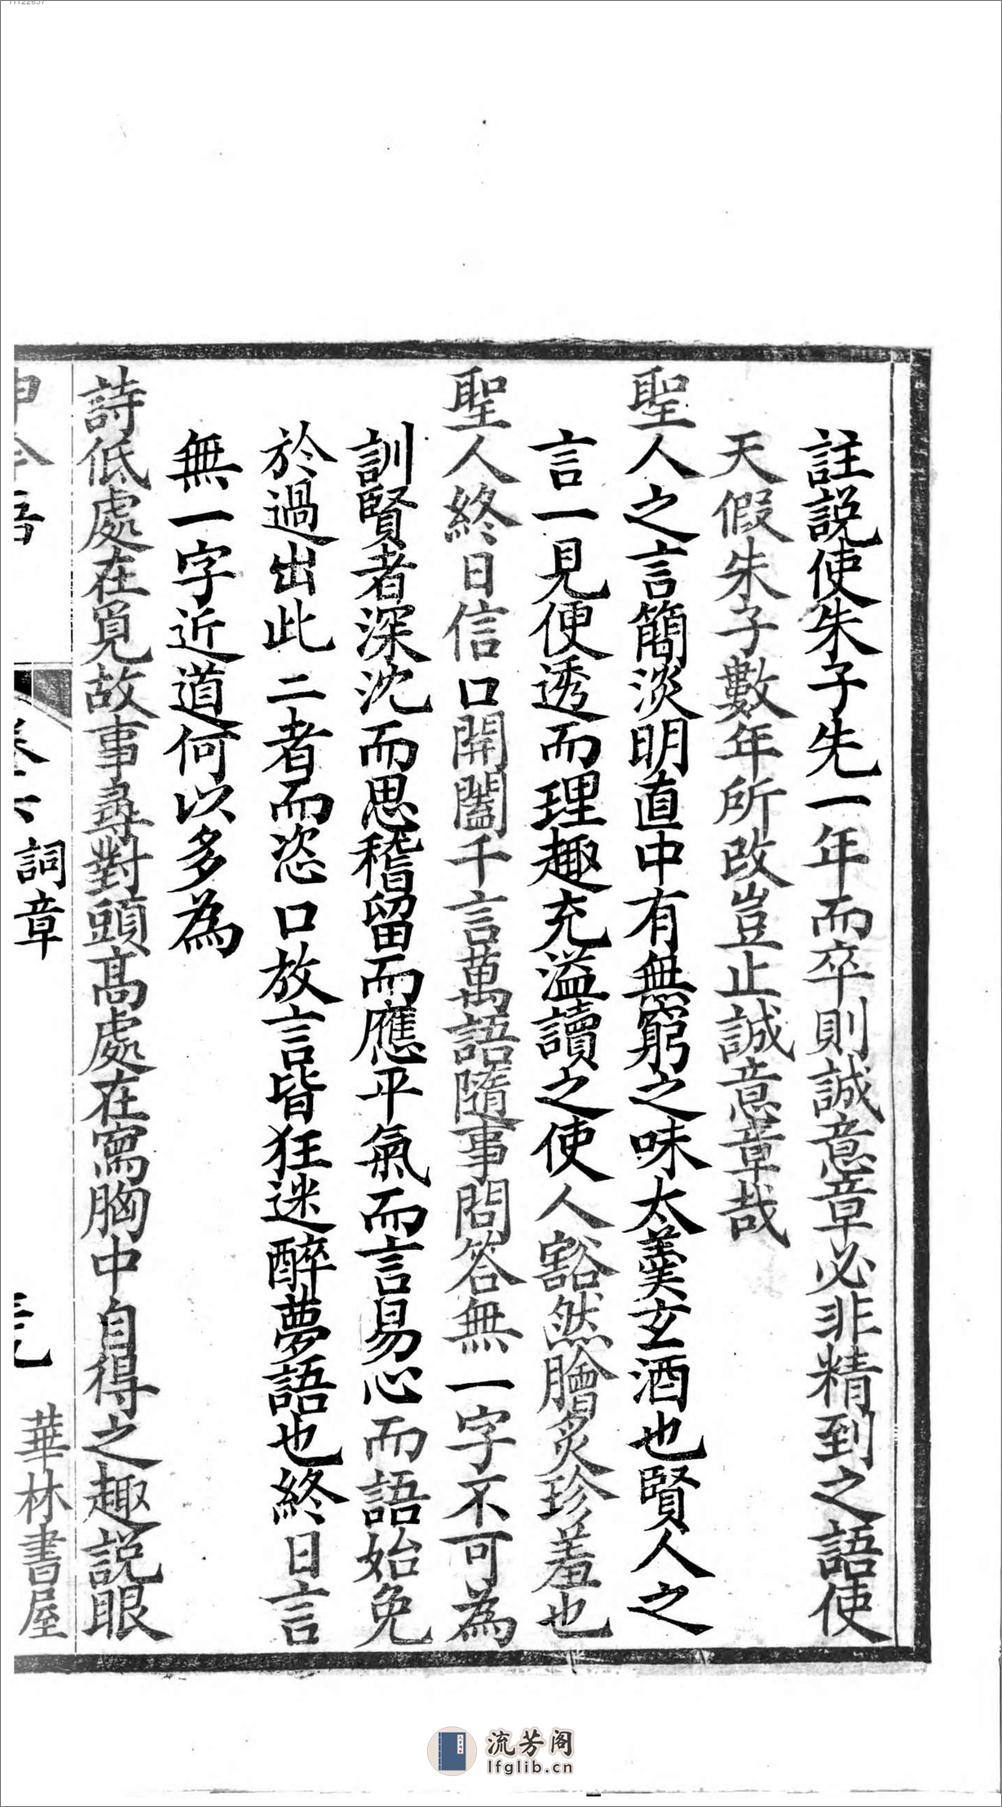 註説使朱子先一年而卒則誠意章必非精到之語使
天假朱子數年所改豈止誠意章哉
聖人之言簡淡明直中有無窮之味太羹玄酒也賢人之
言一見便透而理趣充溢讀之使人豁然膾炙珍羞也
聖人終日信口開闔千言萬語隨事問答無一字不可為
訓賢者深沈而思稽留而應平氣而言易心而語始免
於過出此二者而恣口放言皆狂迷醉夢語也終日言
無一字近道何以多為
詩低處在覓故事尋對頭髙處在寫胸中自得之趣説眼
詞章
華林書屋
流芳阁
lfglib.cn